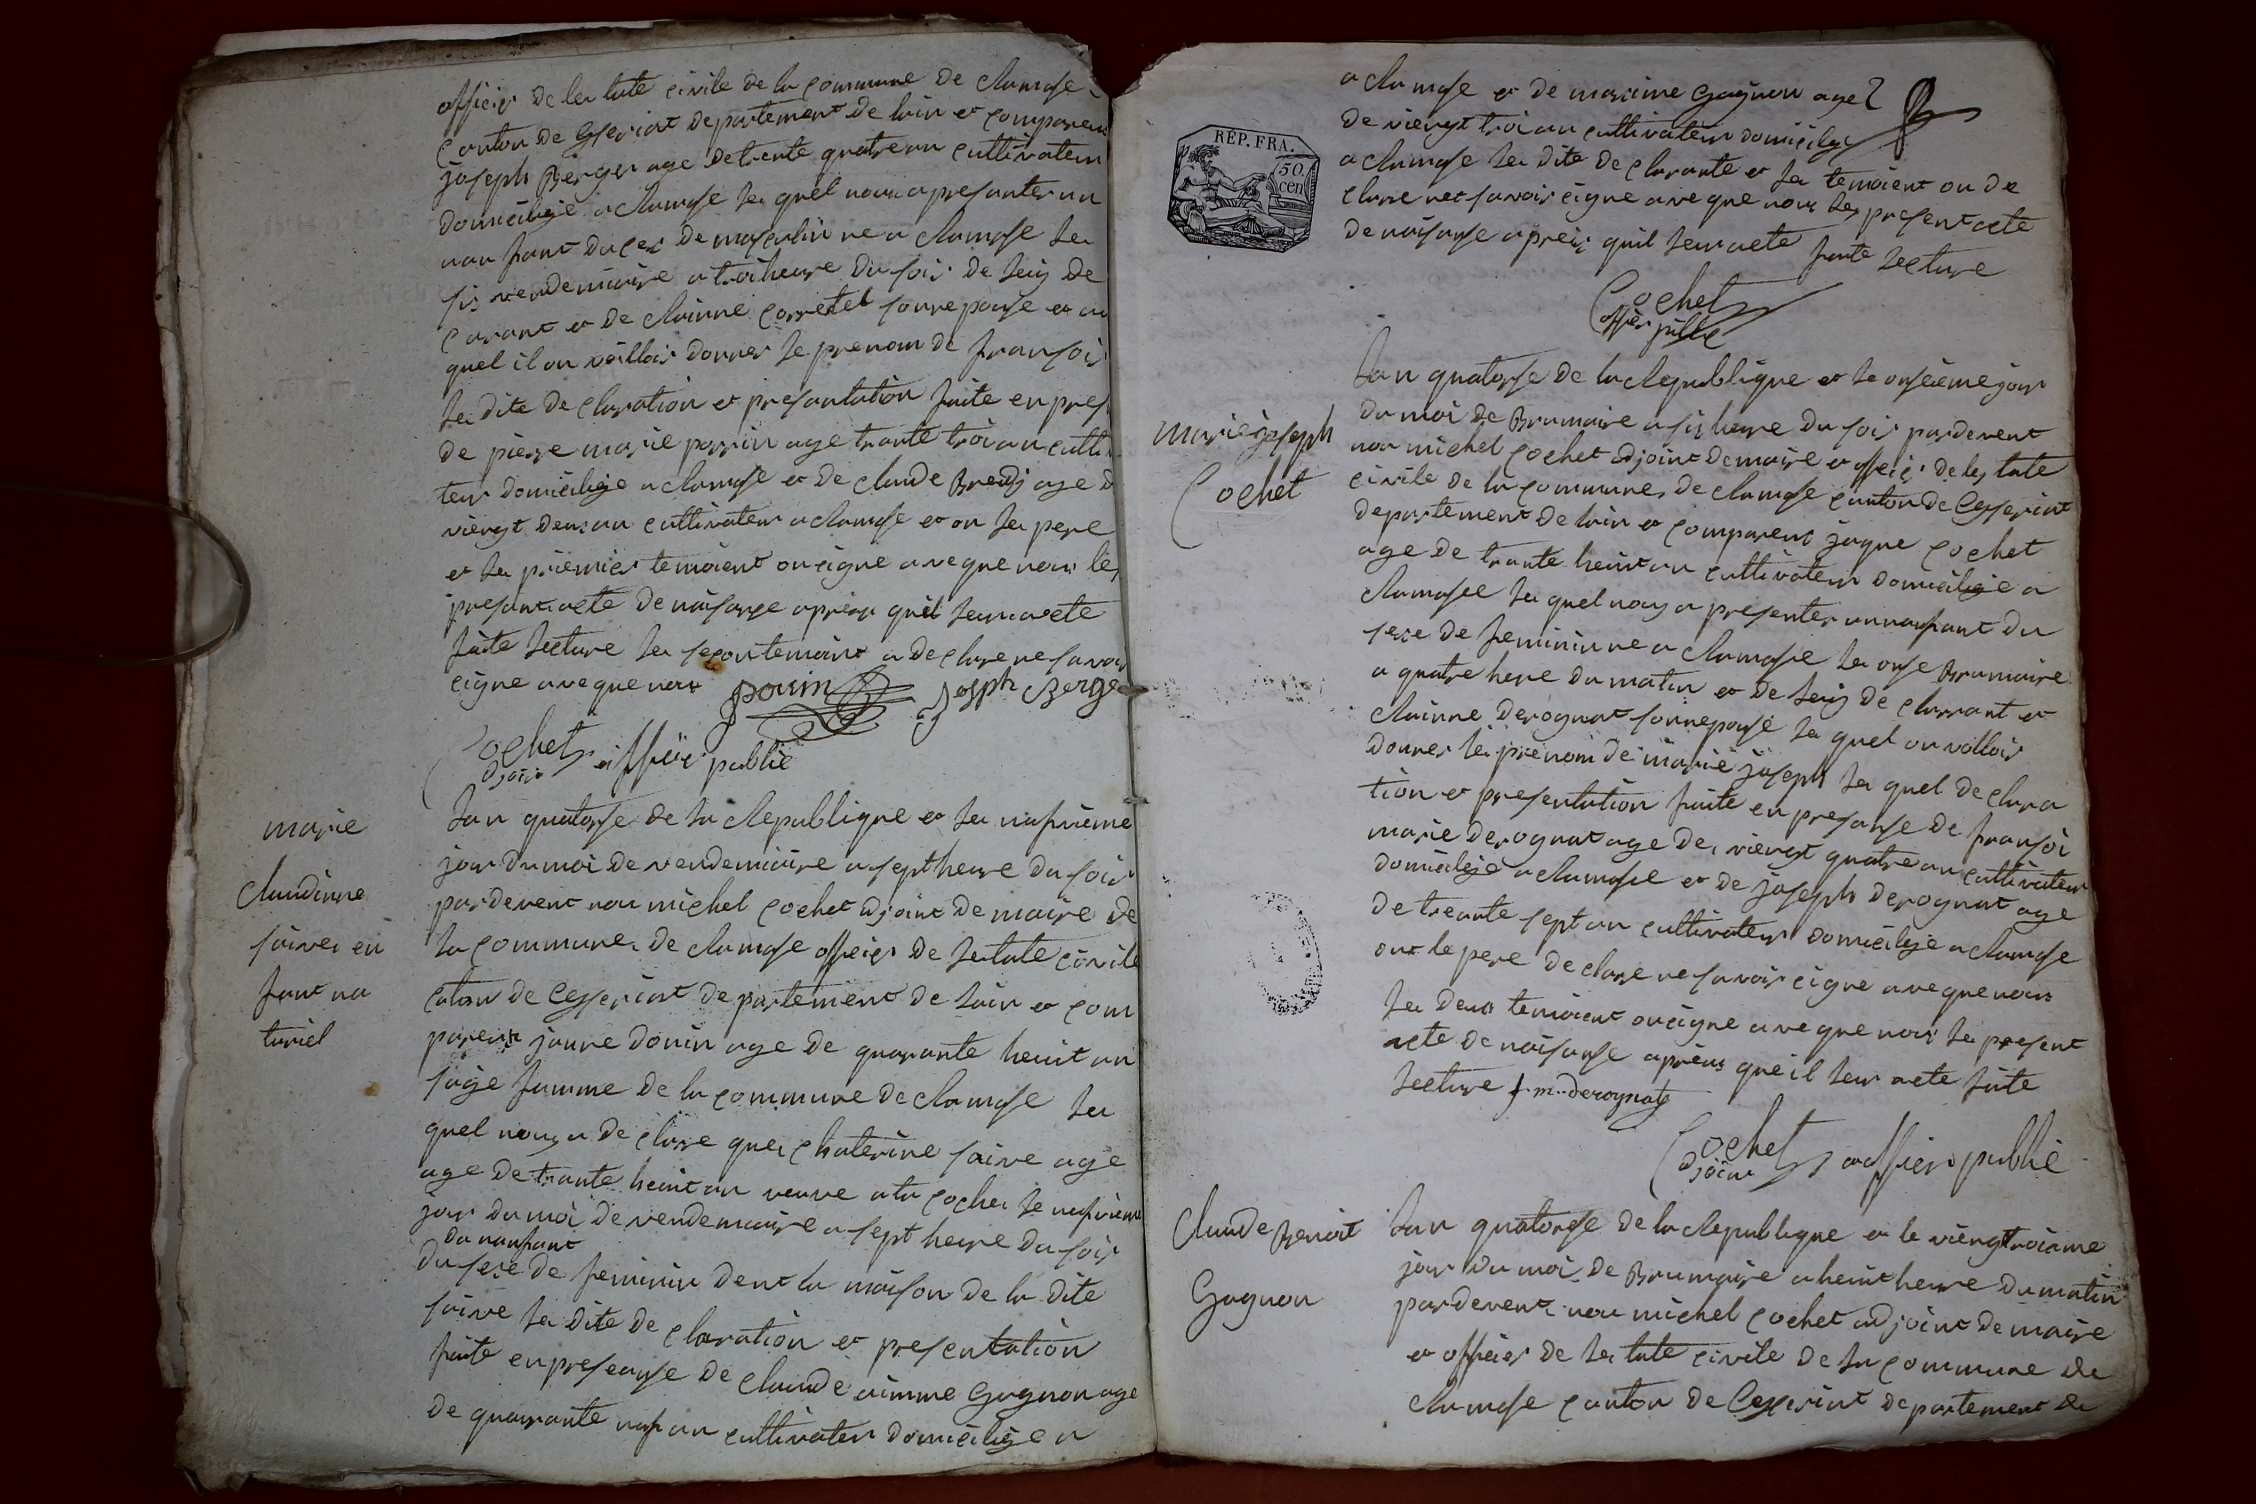 officier de les tate civile de la commune de clamose
canton de Ceyseriat departement de lain et comparent
joseph Berger age de trente quatre an cultivateur
domicilije a clamose le quel nous a presanter un
nau fant du cex de masculin ne a clamose le
sis vendemiaire a troi heure du soir de luij de
carant et de clainne corretel sonnepouse et au
quel il on voillois donner le prenom de fransois
la dite de claration et presantation faite en pres
de pierre marie perrin age trante troi an culti
teur domicilije a clamose et de claude Bredj age d
viengt deux an cultivateur a clamose et on le pere
et le priemier temoient on cigne aveque nous les
presant acte de naisanse apriers quil leur a ete
faite lecture le segon temoint a declare ne savoir
cigne aveque nous perrin Joseph Berge
Cochet adjoin officier publie
marie
claudinne
saive en
fant na
turiel
Lan quatorse de la Republique et le nafvieme
jour du moi de vendemiaire a sept heure du soir
pardevent nou michel Cochet adjoint de maire de
la commune de clamose officier de letate civile
caton de Ceyseriat departement de lain et com
parent janne donin age de quarante heuit an
saije famme de la commune de clamose le
quel nous a de clare que Chaterine saive age
age de trante heuit an veuve a la cocher le nafvieme
jour du moi de vendemaire a sept heure du soir
du naufant
du sexe de feminin dent la maison de la dite
saive la dite de claration et presentation
faite en preseanse de claude aimme Gagnon age
de quarante naf an cultivateur domicilije a
a clamose et de maxime Gagnon age
de viengt troi an cultivateur domicilije
a clamose la dite de clarante et les temoient on de
clare nes savoir cigne aveque nous les present acte
de naisanse apreis quil leur a ete faite lecture
RÉP. FRA.
50
cen
Cochet
offier publie
marie joseph
Cochet
Lan quatorse de la Republique et le onseieme jour
du moi de Brumaire a sis heure du soir pardevent
nou michel Cochet adjoint de maire et officier de les tate
civile de la commune de clamose canton de Ceyseriat
departement de lain et comparent jaque Cochet
age de trante heuit an cultivateur domicilije a
clamosee le quel nous a presenter un naufant du
sexe de feminin ne a clamose le onse Brumaire
a quatre here du matin et de luij de clarrant et
clainne derognat sonnepouse la quel on vollois
donner le prenom de marie joseph la quel de clara
tion et presentation faite en presanse de fransoi
marie derognat age de viengt quatre an cultivateur
domicilije a clamose et de joseph derognat age
de treante sept an cultivateur domicilije a clamose
ont le pere declare ne savoir cigne aveque nous
les deux temoient on cigne aveque nous le present
acte de naisanse apriers queil leur a ete faite
lecture f. m. derognat
Cochet adjoint officier publie
Claude Benoit
Gagnon
Lan quatorse de la Republique et le viengtroisme
jour du moi de Brumaire a heuit heure du matin
pardevent nou michel Cochet adjoint de maire
et officier de les tate civile de la commune de
clamose canton de Ceyseriat departement de